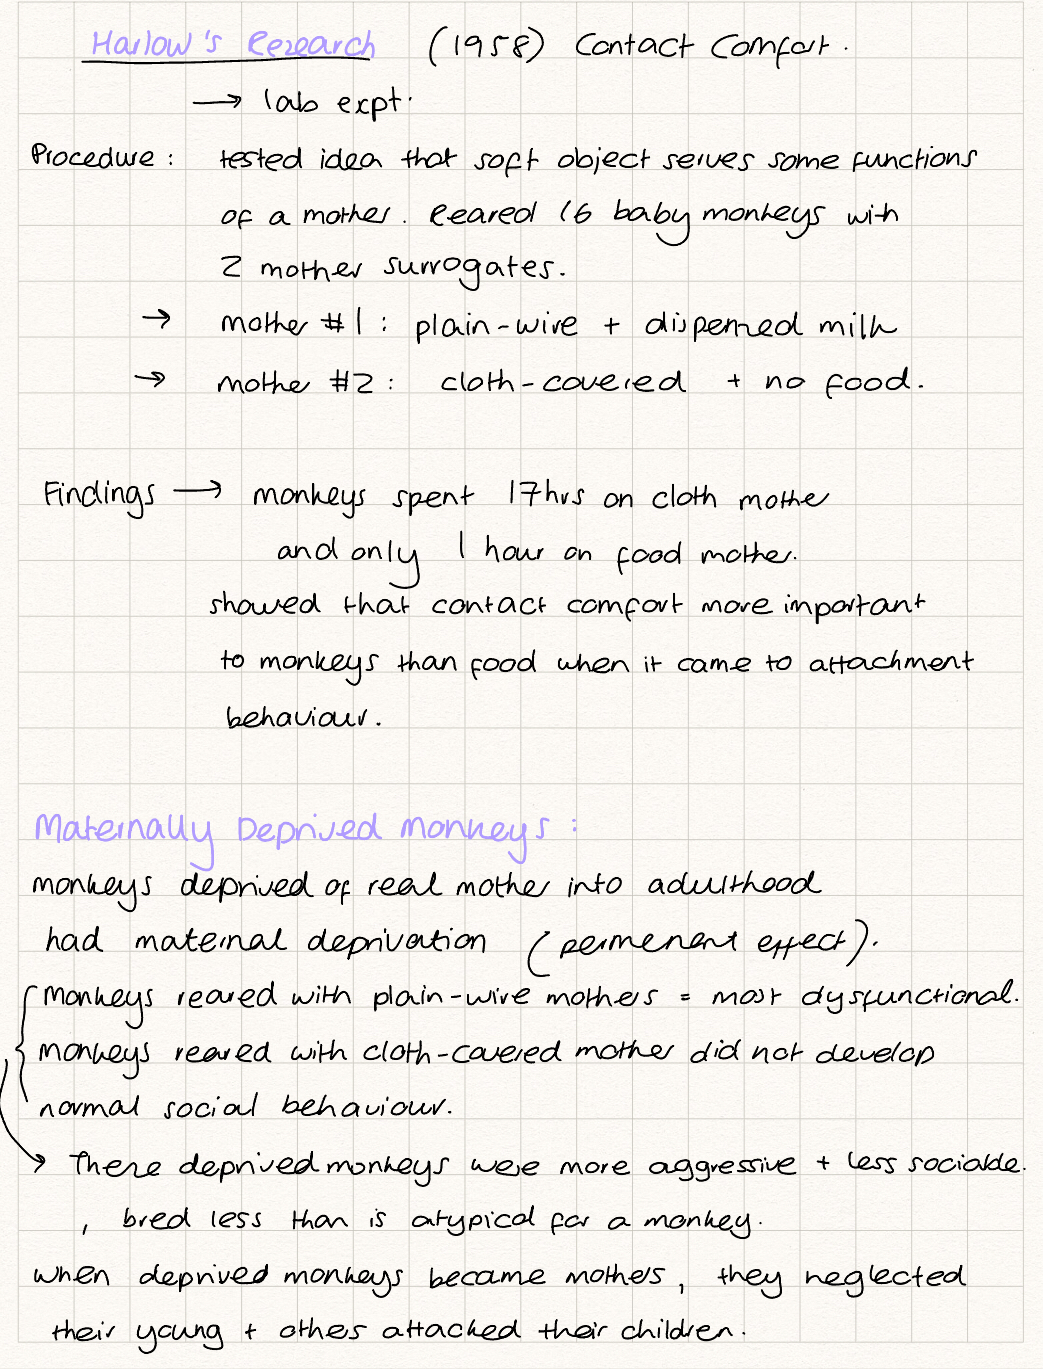 Harlow's Research (1958) Contact Comfort.
→ lab expt.
Procedure: tested idea that soft object serves some functions
of a mother. Reared 16 baby monkeys with
2 mother surrogates.
→ mother #1: plain-wire + dispensed milk
→ mother #2: cloth-covered + no food.
Findings → monkeys spent 17hrs on cloth mother
and only 1 hour on food mother.
showed that contact comfort more important
to monkeys than food when it came to attachment
behaviour.
Maternally Deprived Monkeys:
monkeys deprived of real mother into adulthood
had maternal deprivation (permenent effect).
Monkeys reared with plain-wire mothers = most dysfunctional.
monkeys reared with cloth-covered mother did not develop
normal social behaviour.
→ These deprived monkeys were more aggressive + less sociable.
, bred less than is atypical for a monkey.
when deprived monkeys became mothers, they neglected
their young + others attacked their children.